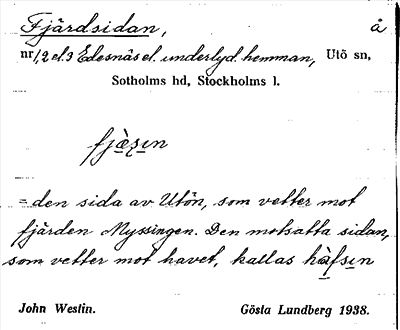 Fjärdsidan, å
nr 1, 2 el. 3 Edesnäs el. underlyd. hemman, Utö sn,
Sotholms hd, Stockholms l.
fjæ̀ʐın
= den sida av Utön, som vetter mot
fjärden Mysingen. Den motsatta sidan,
som vetter mot havet, kallas hàfsın
John Westin. Gösta Lundberg 1938.